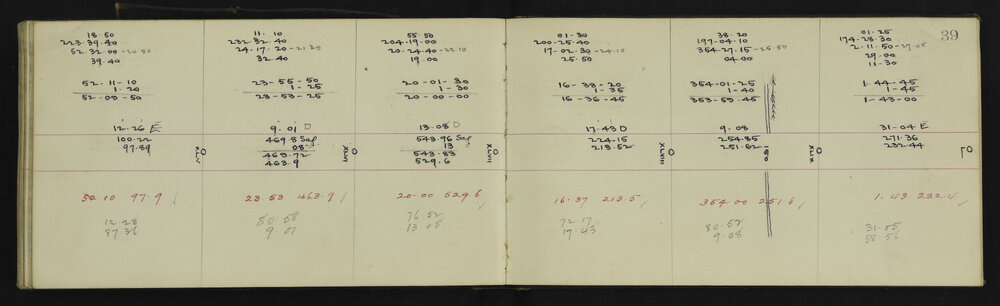 39
18.50
223.39.40
52.32.00-20.50
39.40
52.11-10
1.20
52.09-50
12.26 E
100.22
97.89
XLV
52.10 97.9
12.25
87.36
11.10
232.32.40
24.17.20-21.20
32.40
23-55-50
1-25
23-53-25
9.01 D
469.8 Sag
.08
463.72
463.9
XLVI
23.53 463.9
80.58
9.01
55.50
204.19.00
20-24.40-23.10
19.00
20-01-30
1-30
20-00-00
13.08 D
543.96 Sag
13
543.83
529.6
XLVII
20.00 529.6
76.52
13.05
01-30
200-25.40
17-02.30-24.10
25.50
16-38-20
1-35
16-36-45
17.43 D
224.15
213.52
XLVIII
16.37 213.5
72.17
17.43
38.20
197.04.10
354.27.15-25.50
04.00
354.01.25
1-40
353.59.45
9.08
254.85
251.62
XLIX
354.00 251.6
80.52
9.08
01.25
174.28.30
2.11.50-27.05
29.00
11.30
1-44-45
1-45
1-43-00
31.04 E
271.36
232.44
L
1.43 232.4
31.05
58.56